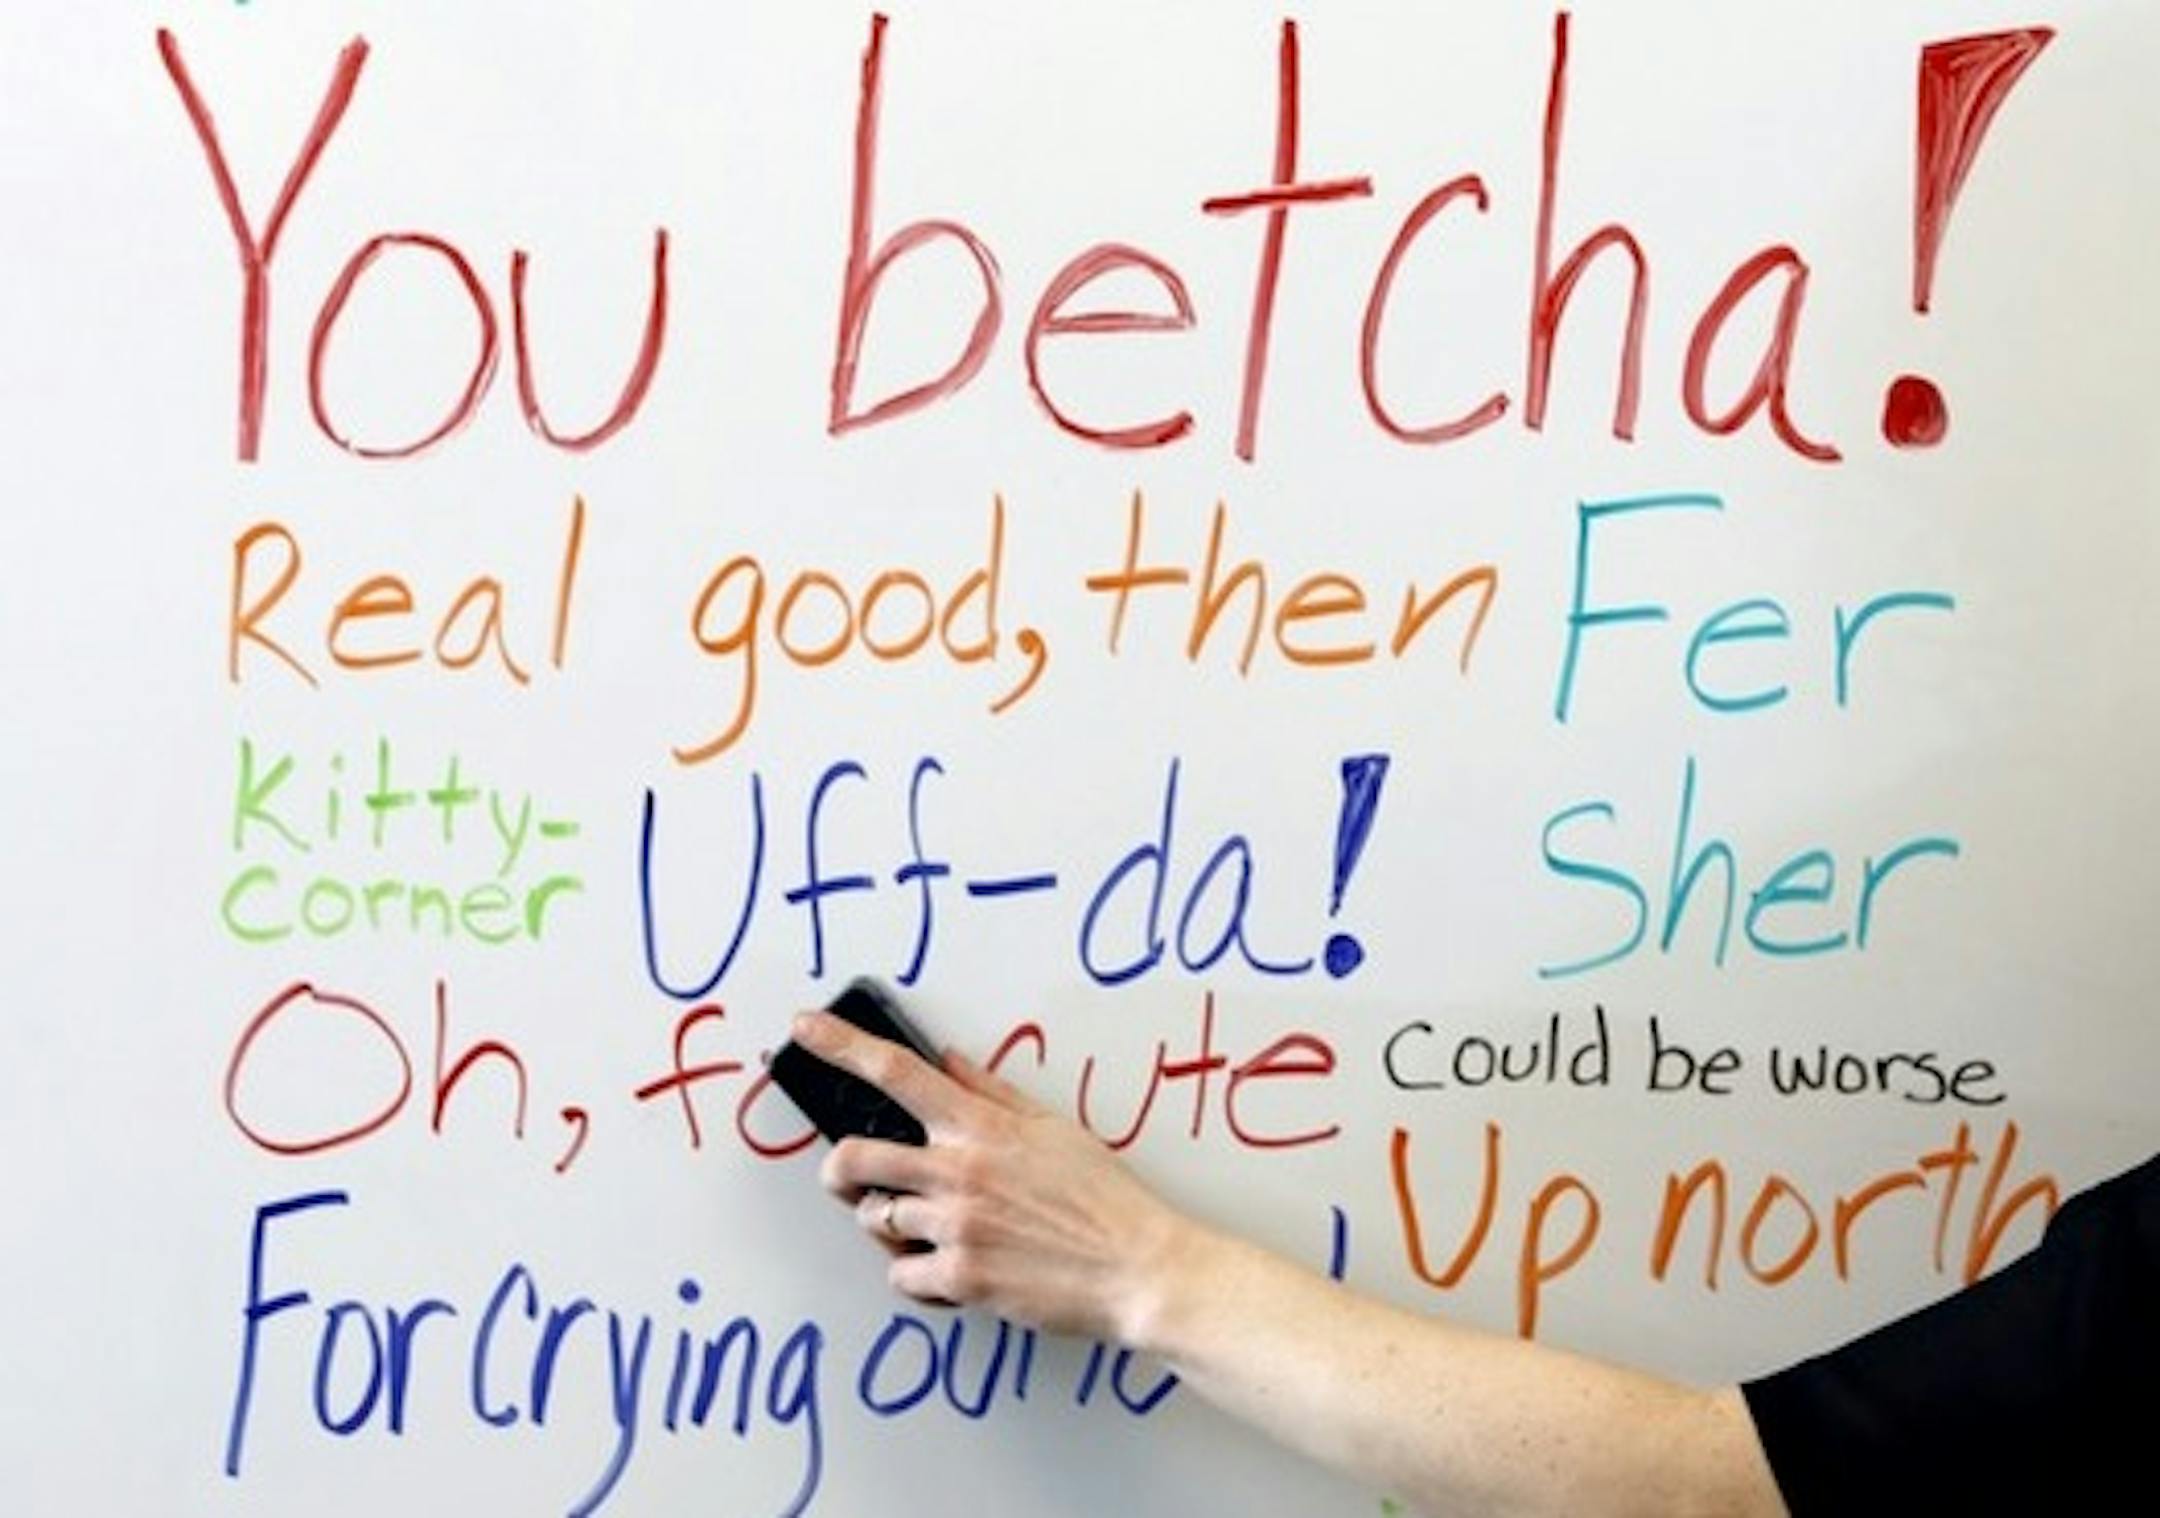 You betcha!
Real good, then
Fer
Sher
Kitty-
Corner
Uff-da!
Oh, cute
Could be worse
Up north
For crying